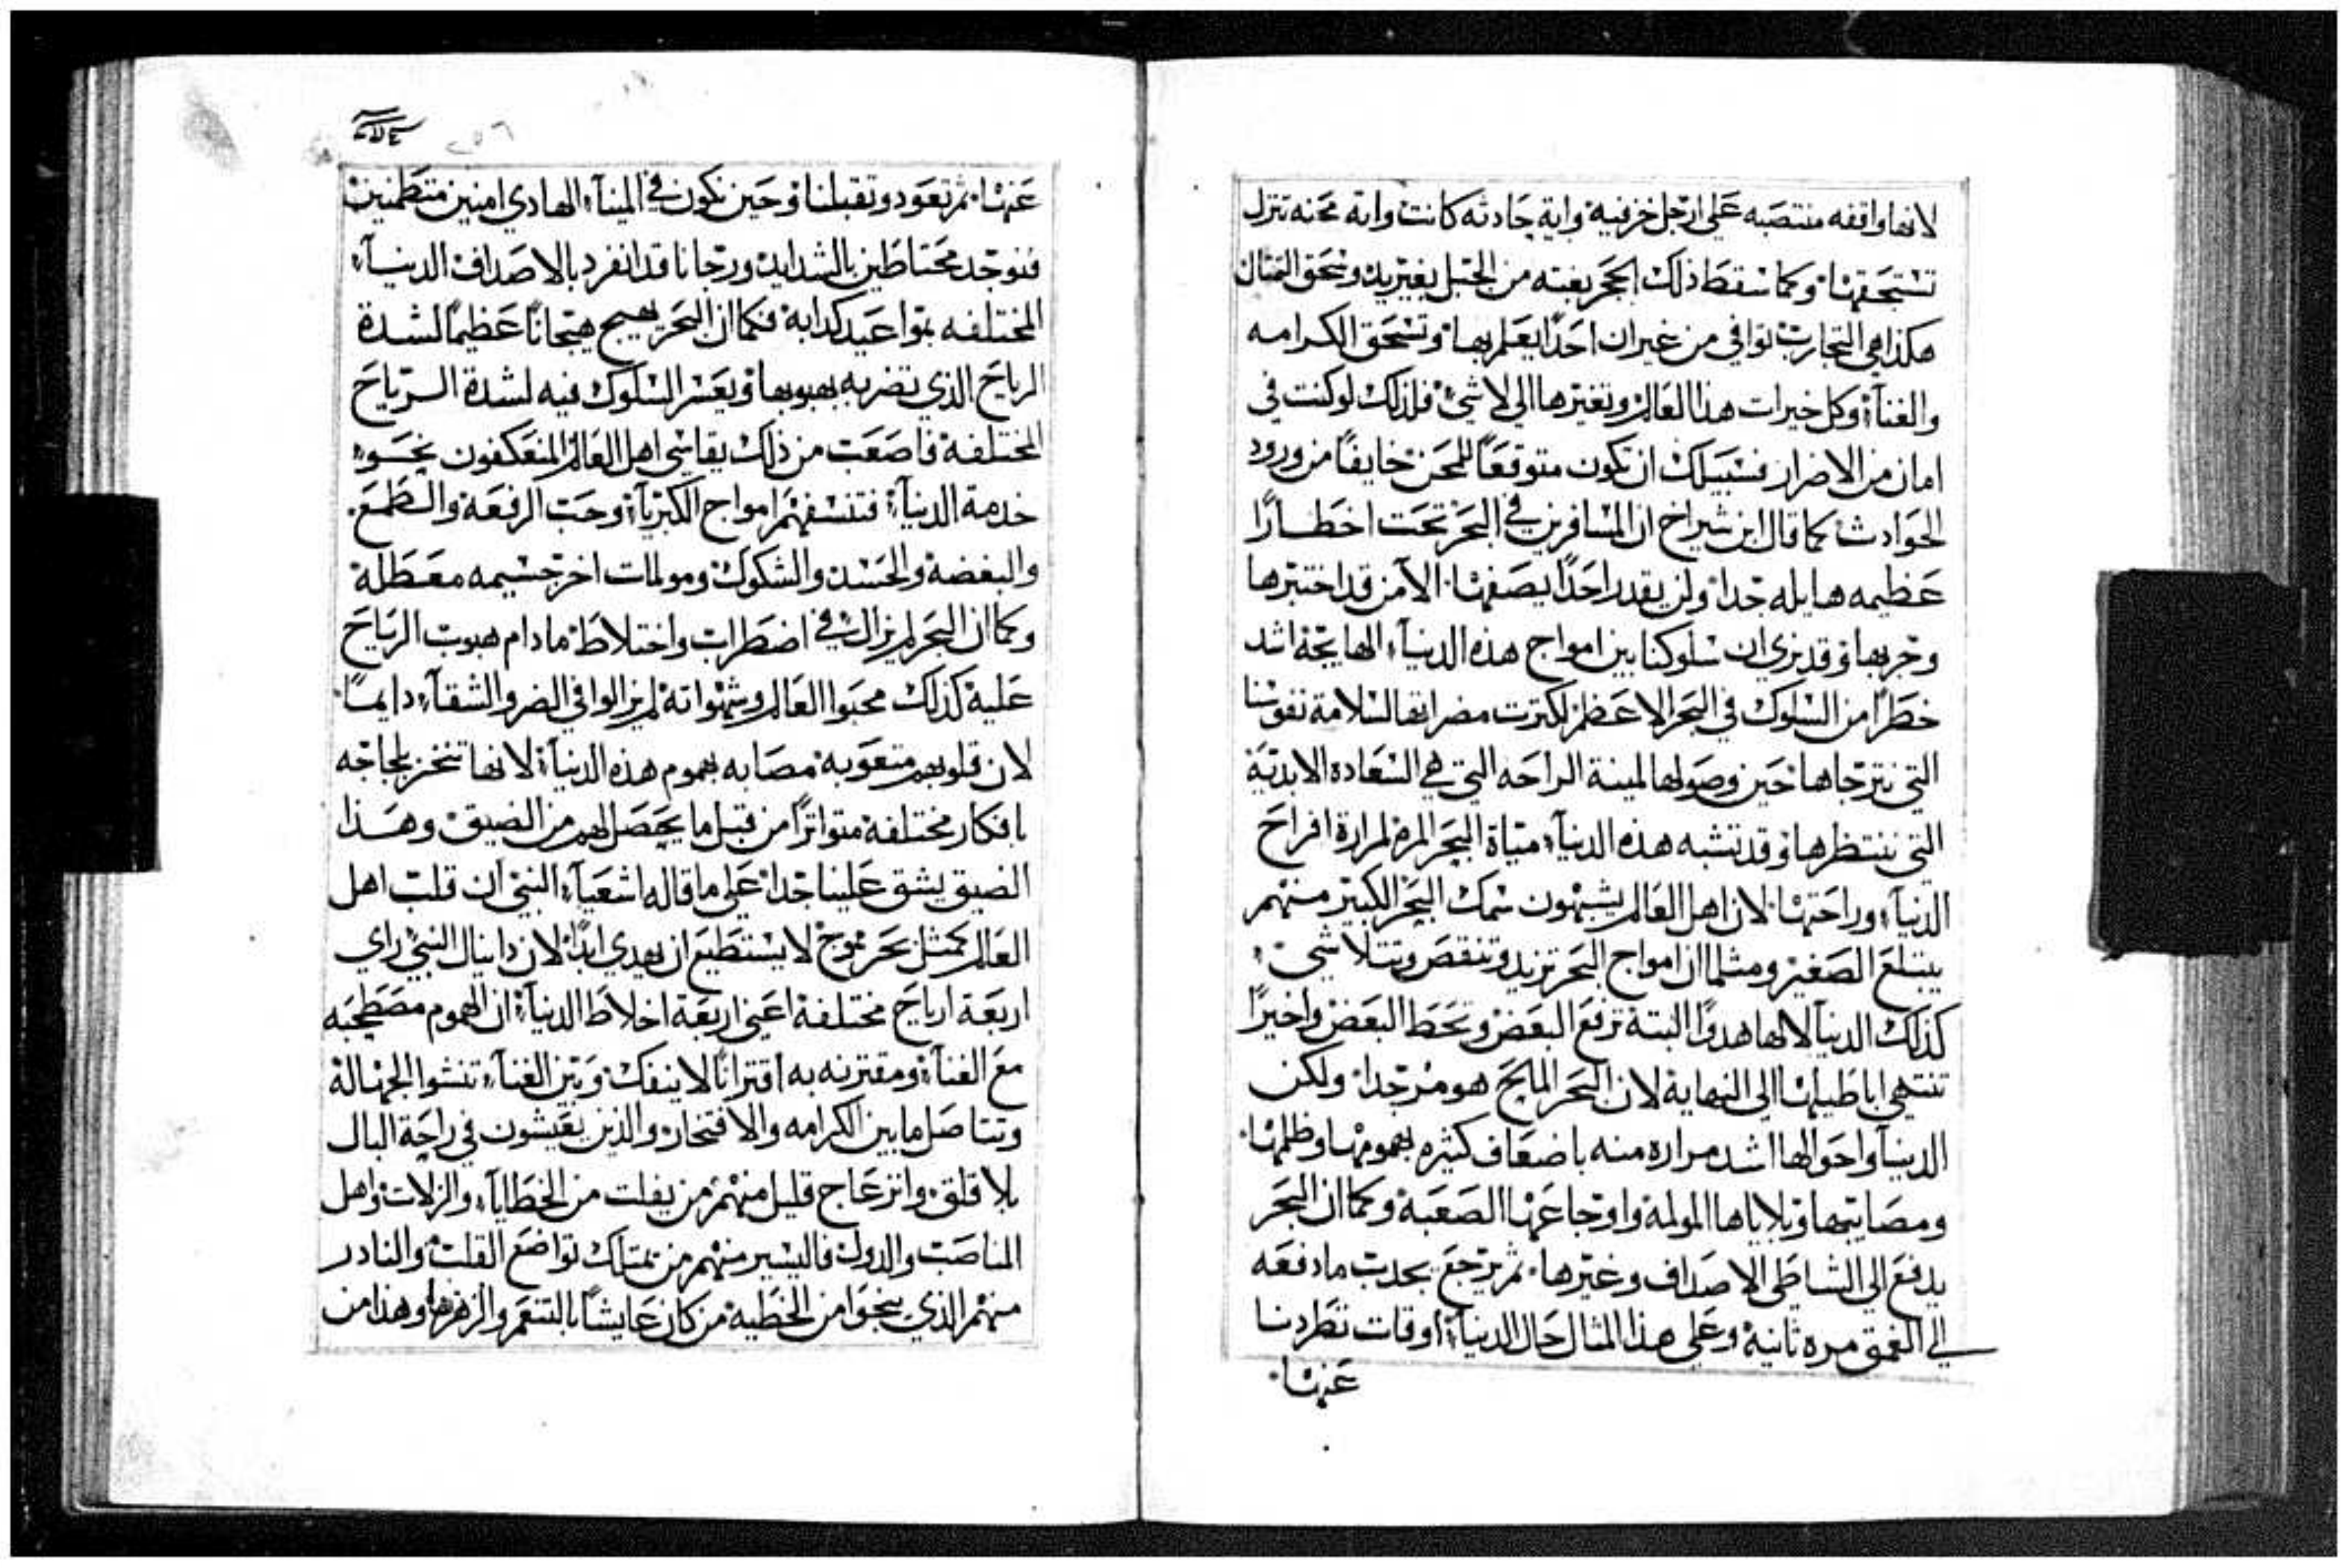 لانها واقفه منتصبه على ارجل خزفيه واية حادثه كانت واية محنه تنزل
تسحقها وكما سقط ذلك الحجر بغته من الجبل بغير يد وسحق التمثال
هكذا هي التجارب توافي من غير ان احدًا يعلم بها وتسحق الكرامه
والغنآء وكل خيرات هذا العالم وتغيرها الى لا شي فلذلك لو كنت في
امان من الاضرار فسبيلك ان تكون متوقعًا للمحن خايفًا من ورود
الحوادث كما قال ابن شيراخ ان المسافرين في البحر تحت اخطارًا
عظيمه هايله جدا ولن يقدر احدًا يصفها الا من قد اختبرها
وجربها وقد نري ان سلوكنا بين امواج هذه الدنيآء الهايجة اشد
خطرًا من السلوك في البحر الاعظم لكثرت مضراتها لسلامة نفوسنا
التي نترجاها حين وصولها لمينة الراحه التي هي السعاده الابدية
التي ننتظرها وقد تشبه هذه الدنيآء مياة البحر المرة لمرارة افراح
الدنيآء وراحتها لان اهل العالم يشبهون سمك البحر الكبير منهم
يبتلع الصغير ومثلما ان امواج البحر تزيد وتنقص وتتلاشي
كذلك الدنيآ لا لها هدوًا البتة ترفع البعض وتحط البعض واخيرًا
تنتهي اباطيلها الى النهاية لان البحر المالح هو مر جدا ولكن
الدنيآ واحوالها اشد مراره منه باضعاف كثيره بهمومها وظلمها
ومصايبها وبلاياها المولمة واوجاعها الصعبة وكما ان البحر
يدفع الي الشاطي الاصداف وغيرها ثم يرجع يجدب ما دفعه
الي العمق مره ثانية وعلى هذا المثال حال الدنيآء اوقات تطردنا
عنها
٢٥٦
عنها ثم تعود وتقبلنا وحين نكون في المينآء الهادي امنين متطمنين
فنوجد محتاطين بالشدايد ورجانا قد انفرد بالاصداف الدنيآء
المختلفه بمواعيد كدابة فكما ان البحر يهيج هيجانًا عظيمًا لشدة
الرياح الذي تضربه بهبوبها ويعسر السلوك فيه لشدة الرياح
المختلفة فاصعب من ذلك يقاسي اهل العالم المنعكفون نحو
خدمة الدنيآء فتنسفهم امواج الكبريآء وحب الرفعة والطمع
والبغضة والحسد والشكوك ومولمات اخر جسيمه معطلة
وكما ان البحر لم يزال في اضطراب واختلاط ما دام هبوب الرياح
علية كذلك محبوا العالم وشهواتة لم يزالوا في الضر والشقآء دايمًا
لان قلوبهم متعوبة مصابه بهموم هذه الدنيآء لانها تنخز بلجاجه
بافكار مختلفة متواترًا من قبل ما يحصل لهم من الضيق وهذا
الضيق يشق علينا جدا على ما قاله اشعيآء النبي ان قلب اهل
العالم كمثل بحر يموج لا يستطيع ان يهدي ابدًا لان دانيال النبي راي
اربعة ارياح مختلفة اعني اربعة اخلاط الدنيآء ان الهموم مصطحبه
مع الغنآء ومقترنه به اقترانًا لا ينفك وبين الغنآء تنشوا الجهالة
وتتاصل ما بين الكرامه والافتخار والذين يعيشون في راحة البال
بلا قلق وانزعاج قليل منهم من يفلت من الخطايآء والزلات واهل
المناصب والدول فاليسير منهم من يمتلك تواضع القلب والنادر
منهم الذي ينجوا من الخطية من كان عايشًا بالتنعم والزهزهة وهذا من